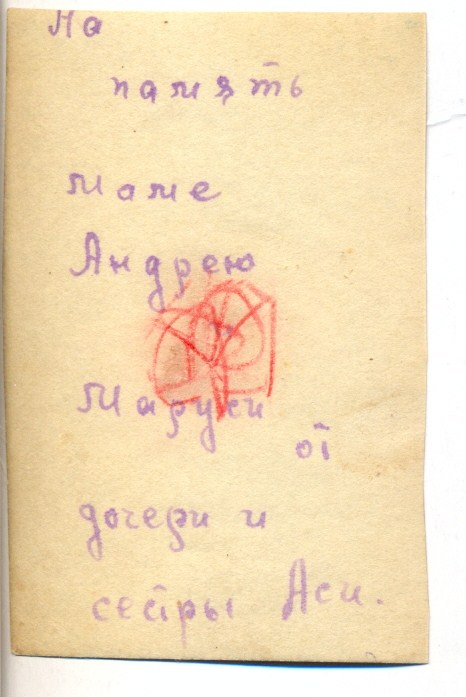 На
память
маме
Андрею
Маруси
от
дочери и
сестры Аси.